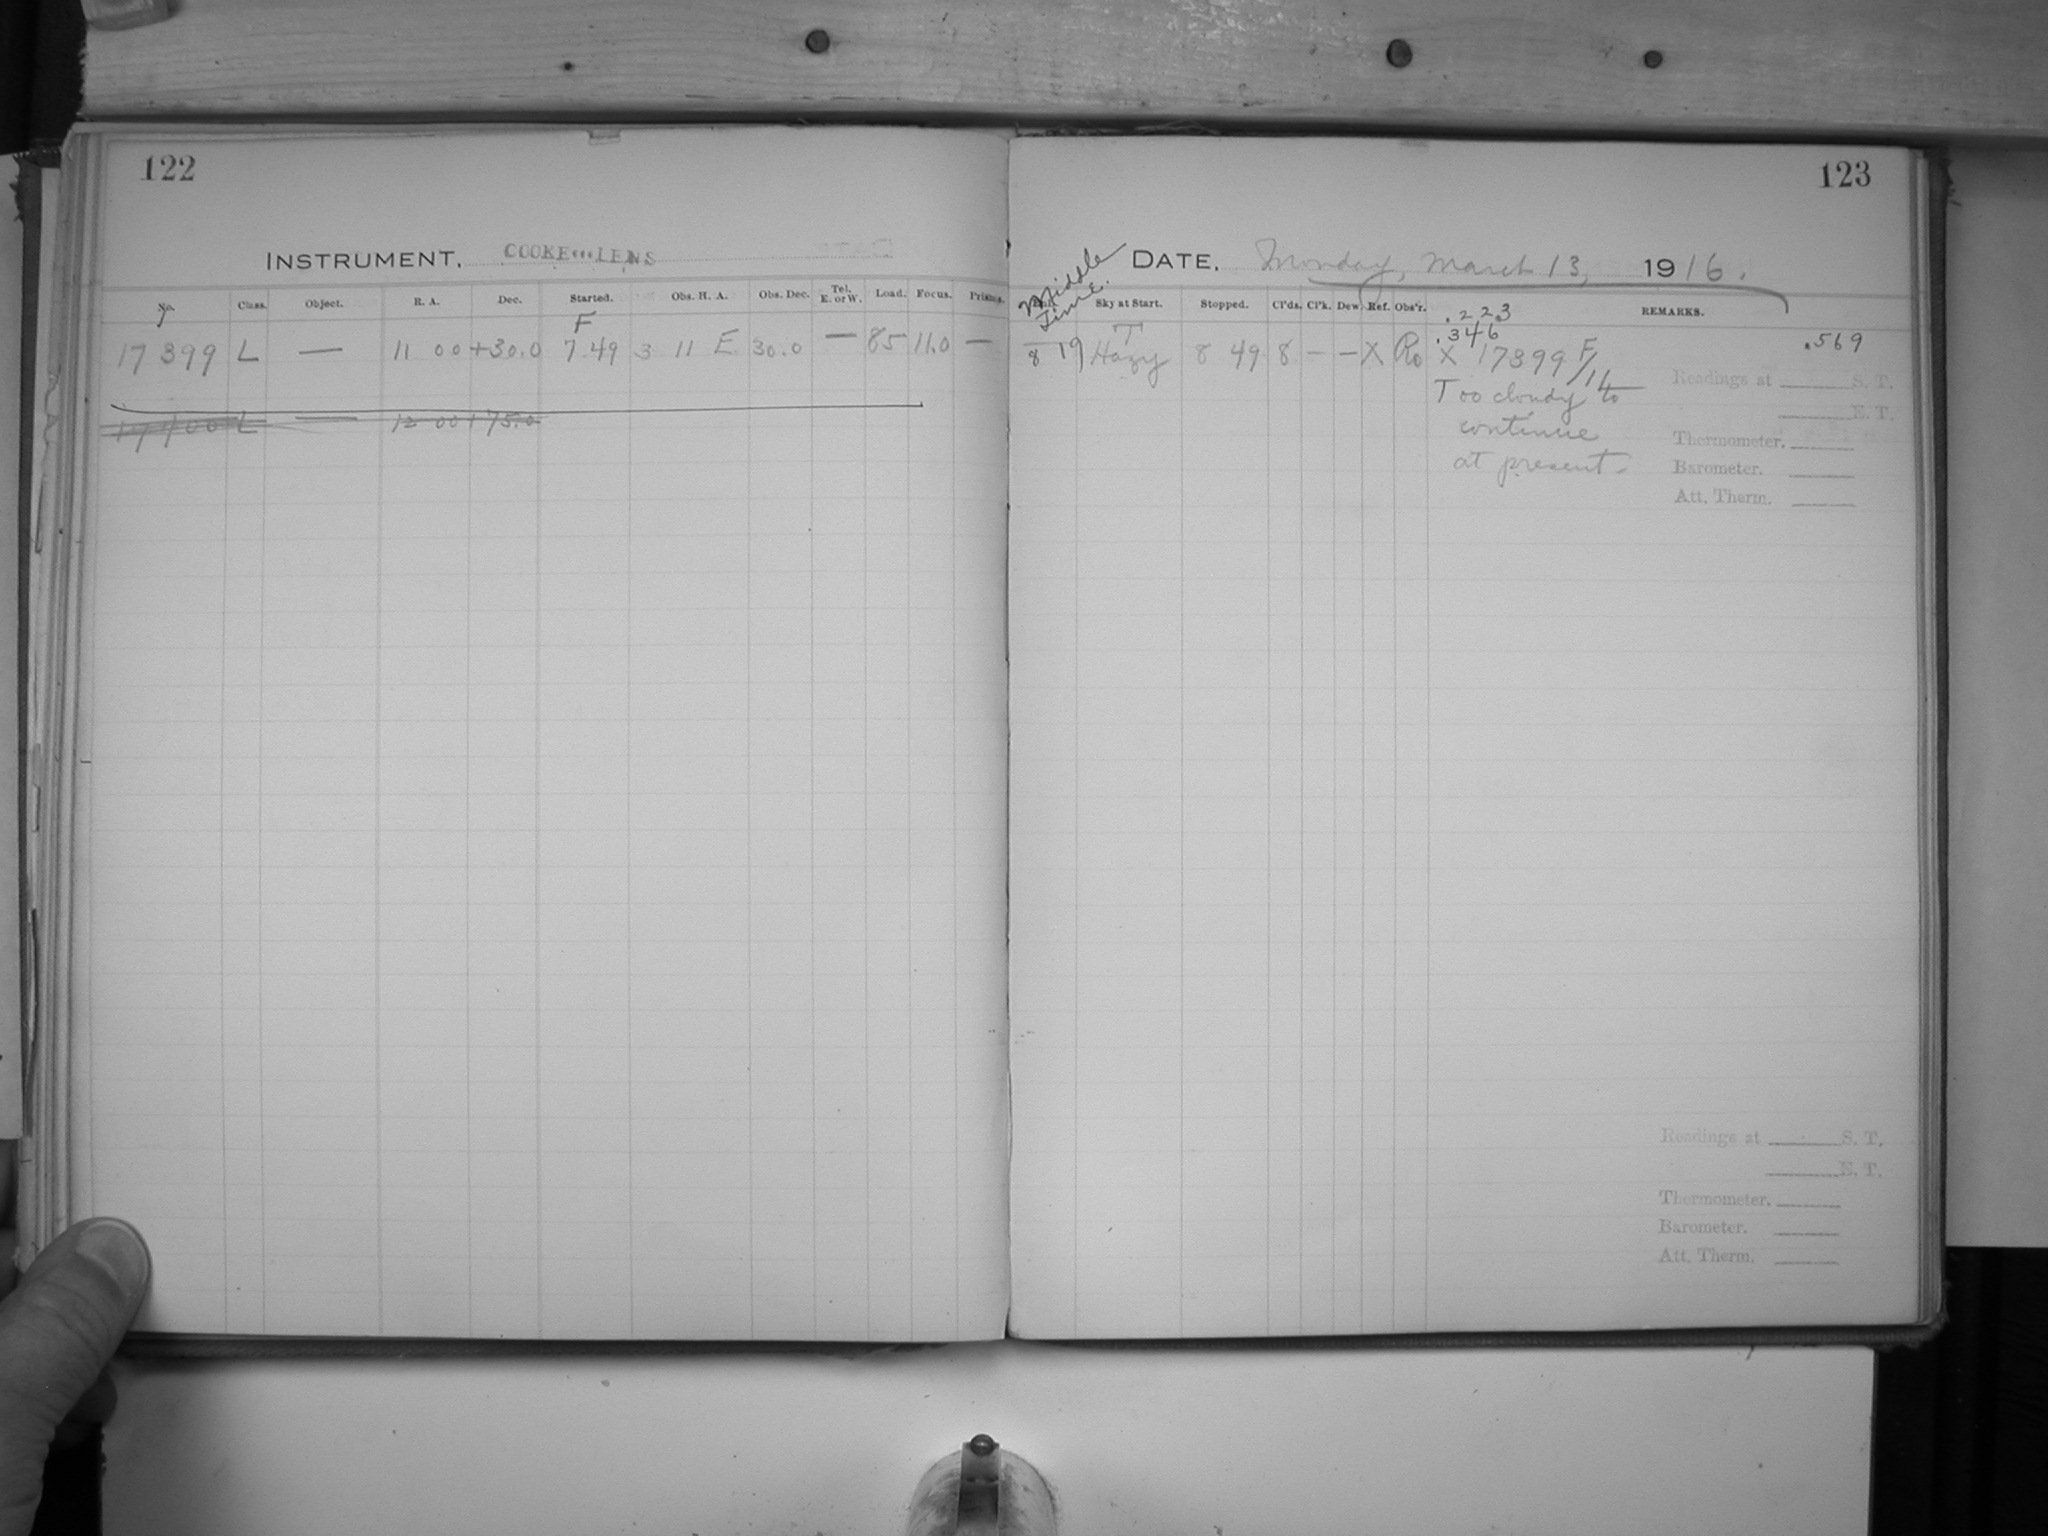 122
INSTRUMENT. COOKE LENS
No. Class. Object. R. A. Dec. Started. Obs. H. A. Obs. Dec. Tel. E. or W. Load. Focus. Prisms.
F
17399 L — 11 00 +30.0 7.49 3 11 E 30.0 — 85 11.0 —
17400 L — 12 00 +75.0
123
DATE. Monday, March 13, 1916.
Middle Time.
Sky at Start. Stopped. Cl'ds. Cl'k. Dew. Ref. Obs'r. REMARKS.
.223
.346 .569
T
8 19 Hazy 8 49 8 – – X Ro X 17399 F/14
Too cloudy to
continue
at present.
Readings at S. T.
N. T.
Thermometer.
Barometer.
Att. Therm.
Readings at S. T.
N. T.
Thermometer.
Barometer.
Att. Therm.